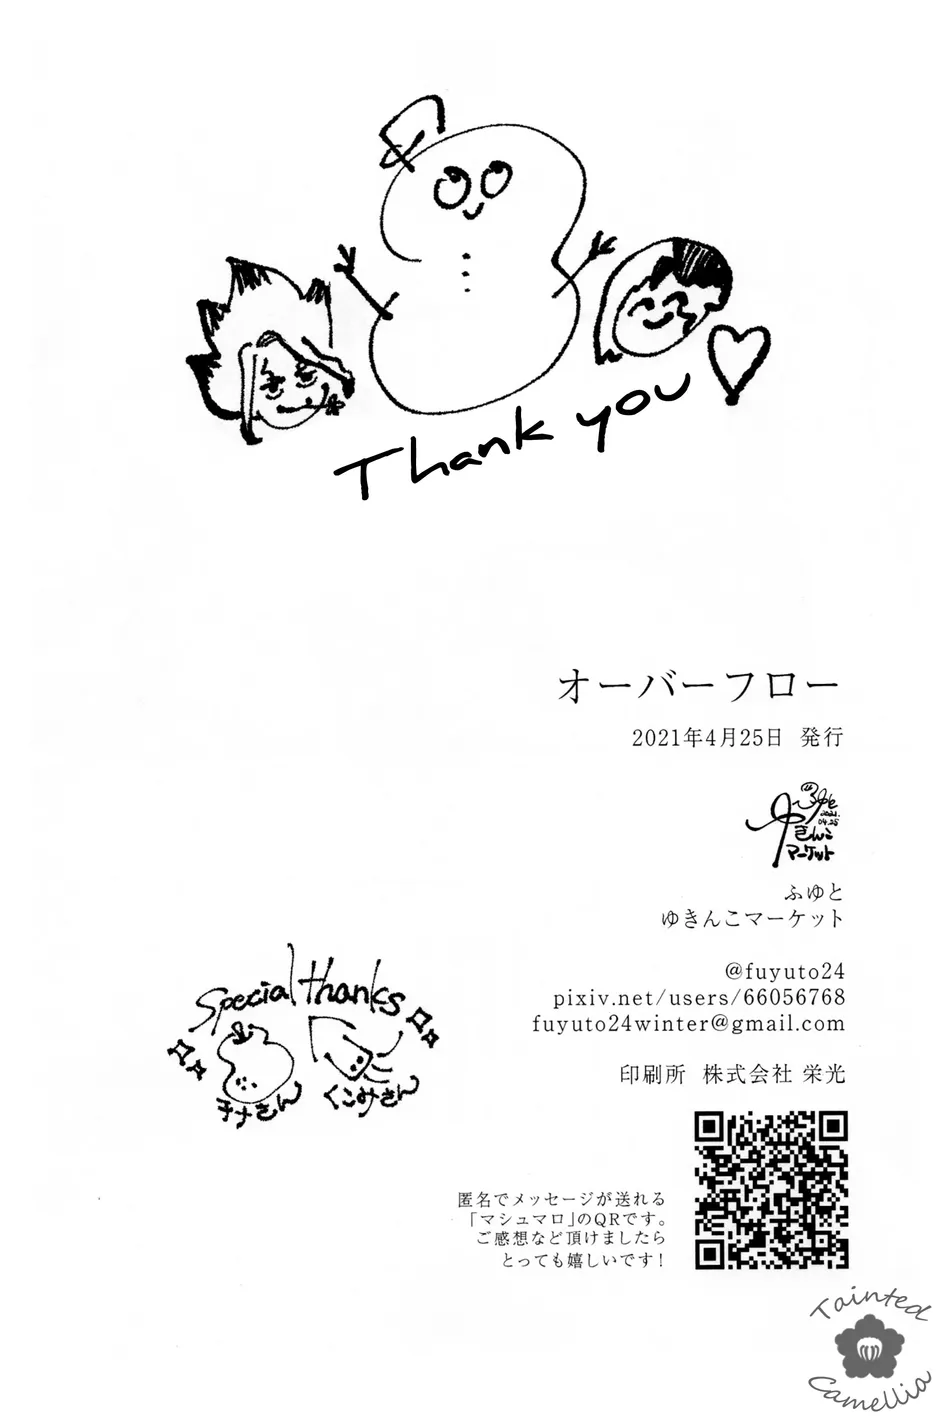 Thank you
オーバーフロー
2021年4月25日 発行
ふゆと
2021.
04.25
ゆきんこ
マーケット
ふゆと
ゆきんこマーケット
@fuyuto24
pixiv.net/users/66056768
fuyuto24winter@gmail.com
印刷所 株式会社 栄光
Special thanks
チナさん
くこみさん
匿名でメッセージが送れる
「マシュマロ」のQRです。
ご感想など頂けましたら
とっても嬉しいです!
Tainted
Camellia